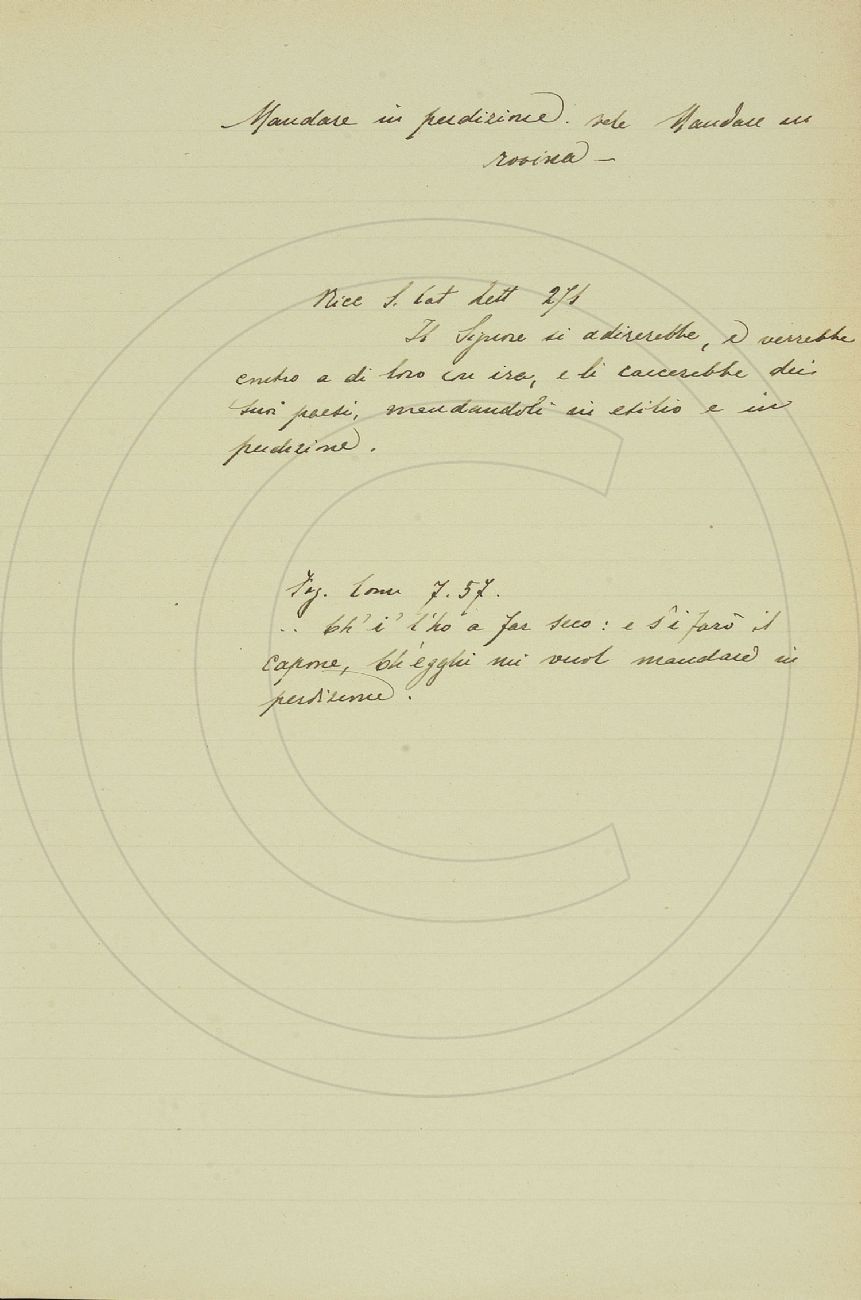 Mandare in perdizione. vale Mandare in
rovina –
Ricc S. Cat Lett 271
Il Signore si adirerebbe, e verrebbe
contro a di loro in ira, e li caccerebbe dei
suoi paesi, mandandoli in esilio e in
perdizione.
Fag. Com 7.57.
.. Ch' i' l'ho a far seco: e s'i farò il
capone, Ch'egghi mi vuol mandare in
perdizione.